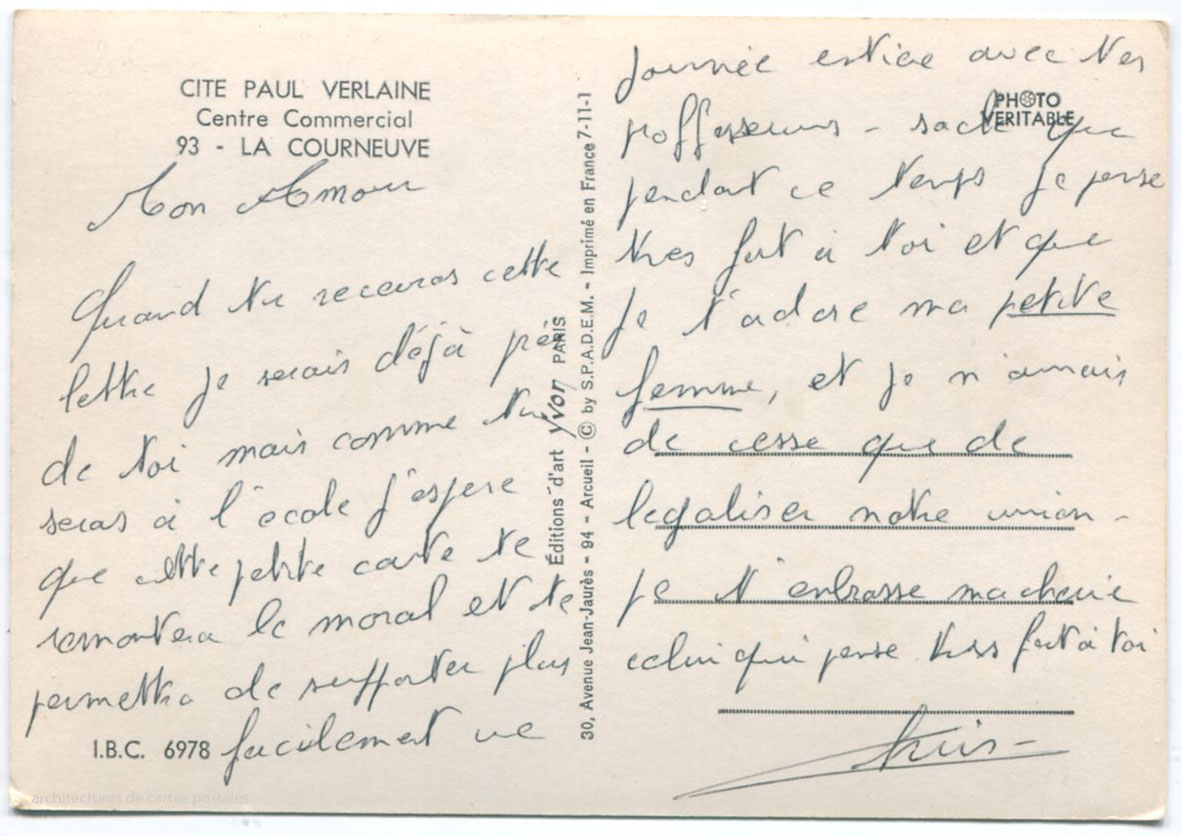 CITE PAUL VERLAINE
Centre Commercial
93 - LA COURNEUVE
Mon Amour
Quand tu receuras cette
lettre je serais déjà près
de toi mais comme tu
seras à l'école j'espere
que cette petite carte te
remontera le moral et te
permettra de supporter plus
facilement une
I.B.C. 6978
Éditions d'art yvon PARIS
30, Avenue Jean-Jaurès - 94 - Arcueil - © by S.P.A.D.E.M. - Imprimé en France 7-11-1
PHOTO
VERITABLE
journée entière avec tes
proffesseurs - sache que
pendant ce temps je pense
tres fort à toi et que
je t'adore ma petite
femme, et je n'aurais
de cesse que de
legaliser notre union -
je t'enbrasse ma cherie
celui qui pense tres fort à toi
architectures de cartes postales